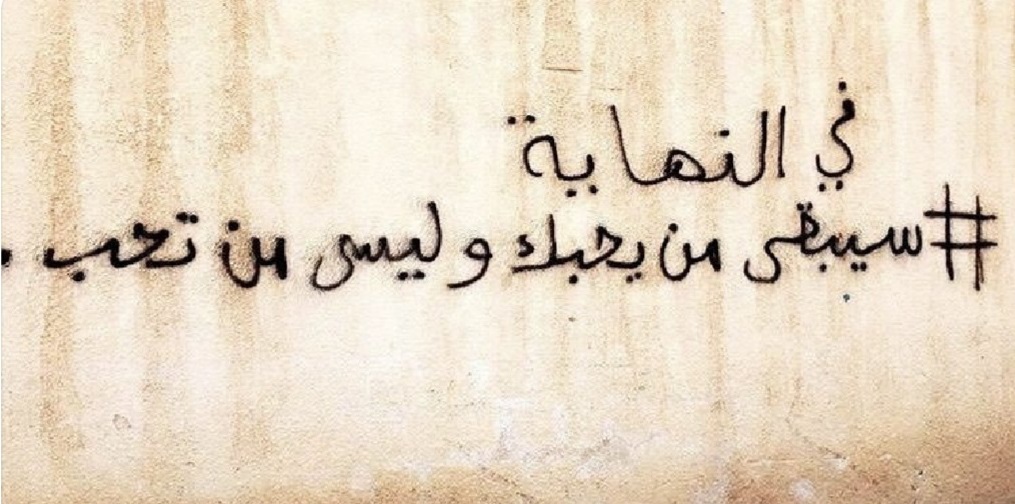 في النهاية
#سيبقى من يحبك وليس من تحب.